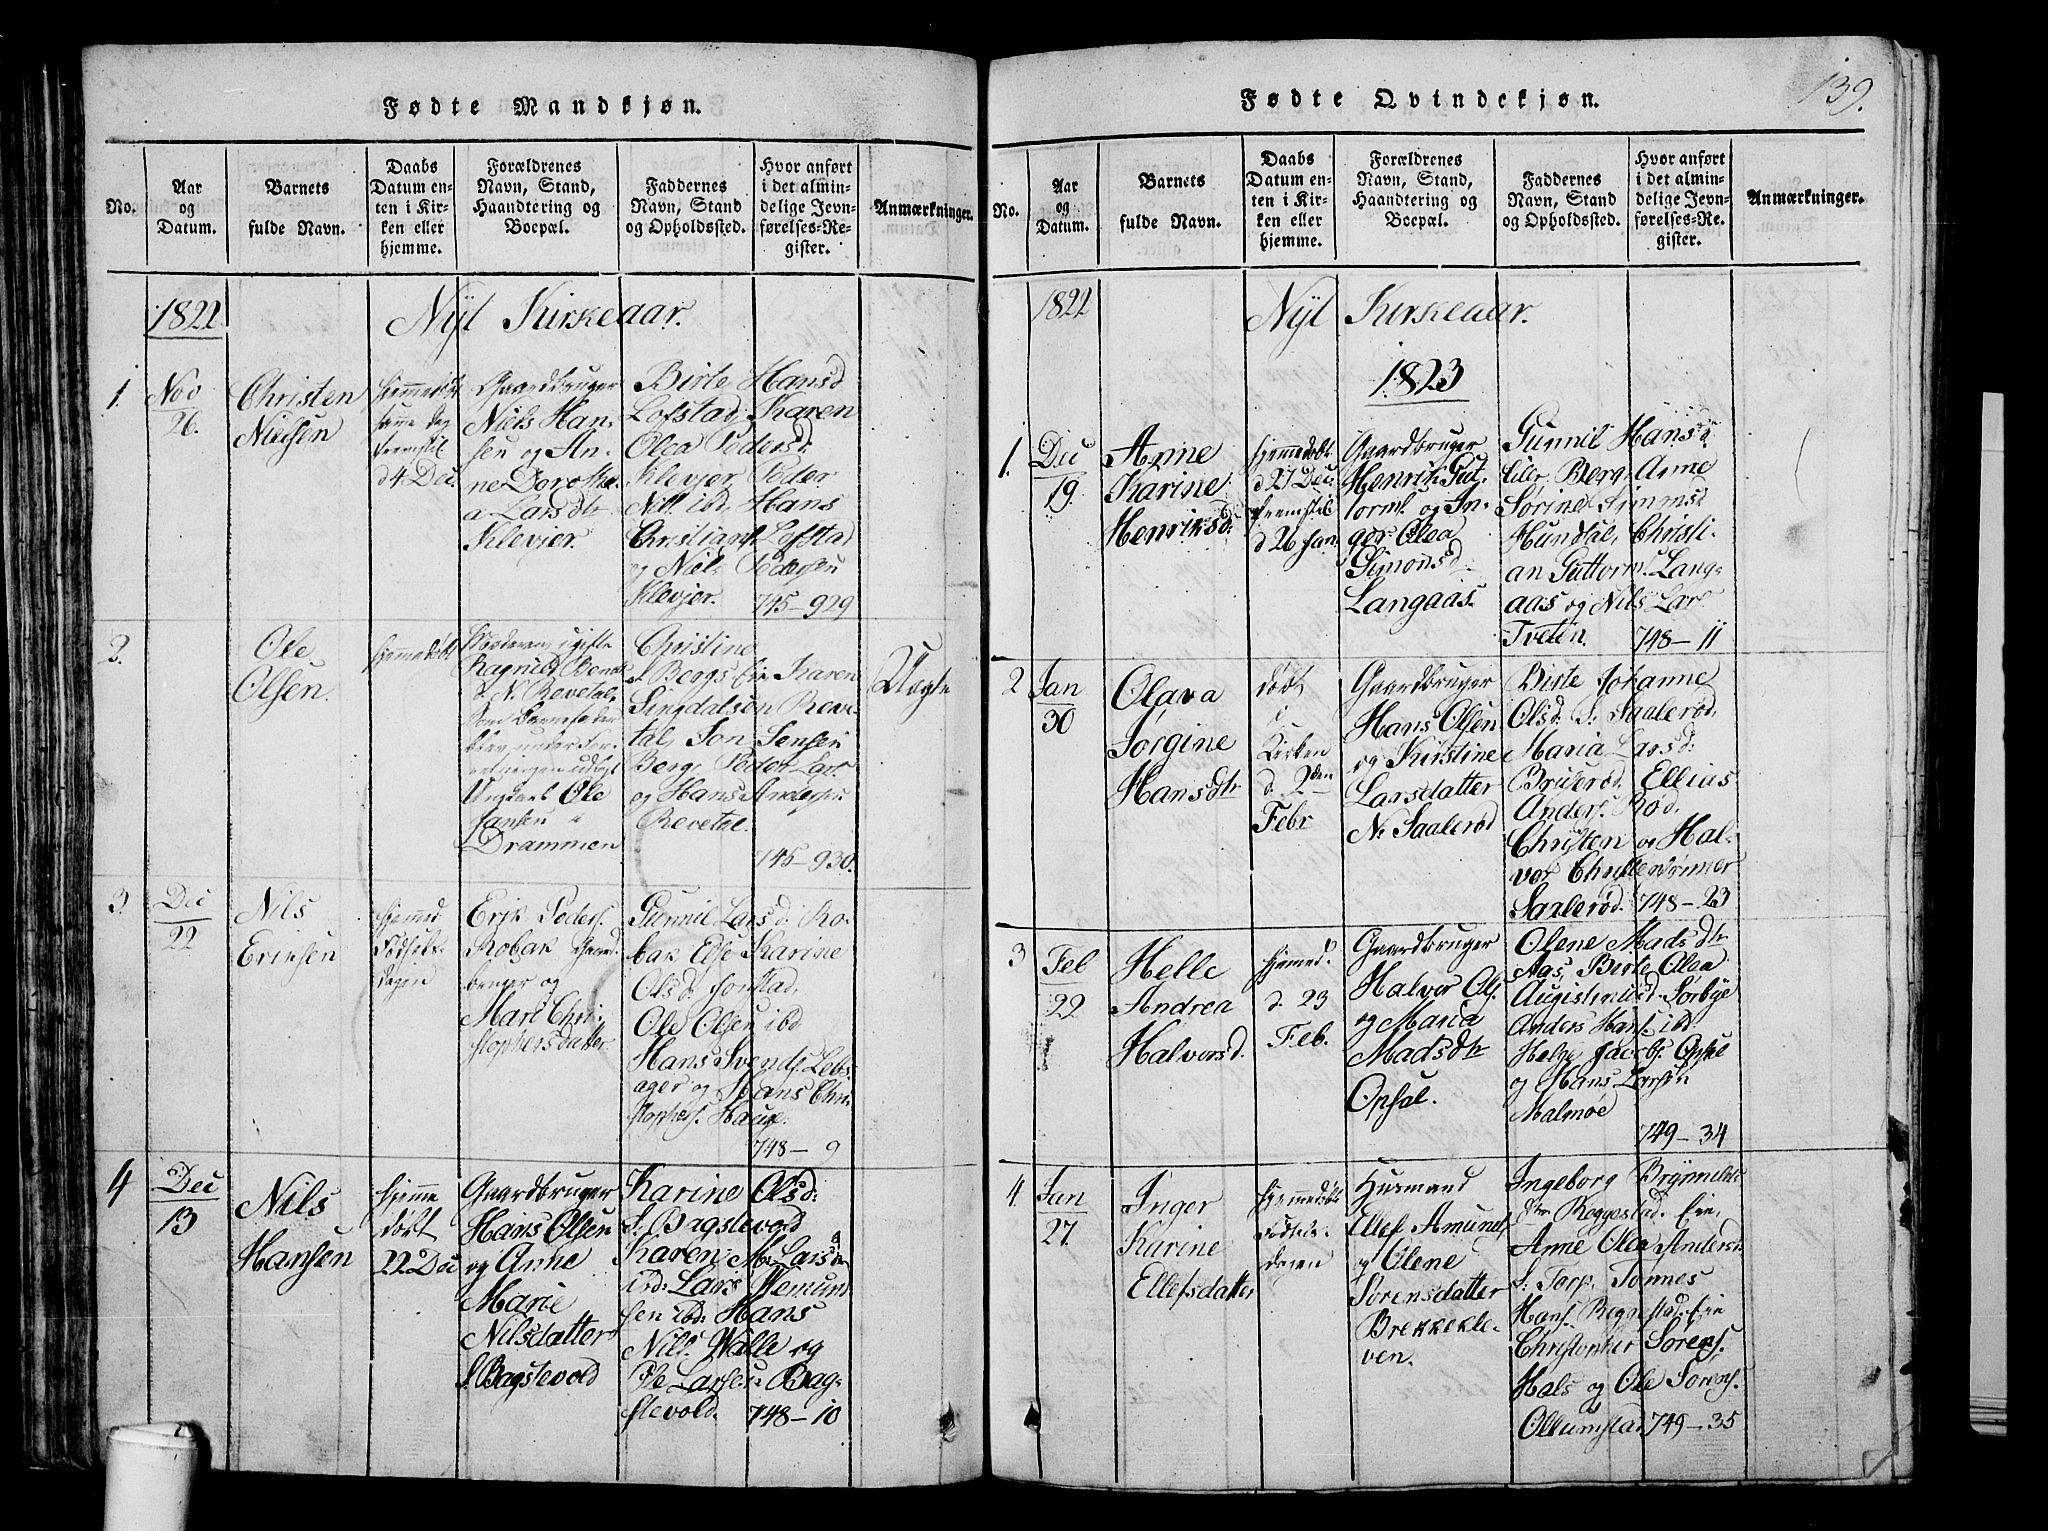 139.
Fødte Mandkjøn.
No.
Aar
og
Datum.
Barnets
fulde Navn.
Daabs
Datum en-
ten i Kir-
ken eller
hjemme.
Forældrenes
Navn, Stand,
Haandtering og
Boepæl.
Faddernes
Navn, Stand
og Opholdssted.
Hvor anført
i det almin-
delige Jevn-
førelses-Re-
gister.
Anmærkninger.
1822
Nyt Kirkeaar.
1.
Nov
26.
Christen
Nielsen
hjemmedøbt
samme dag
fremstil
d 4 Dec
Gaardbruger
Niels Han-
sen og An-
ne Dorothe-
a Larsdtr
Klevjer.
Birte Hansd
Lofstad, Karen
Olea Pedersd.
Klevjer, Peder
Nils. ibd, Hans
Christians. Lofstad
og Niels Pedersen
Klevjer. 745-929
2.
Ole
Olsen.
hjemmedøbt
Moderen ugifte
Ragnild
N. Revetal,
som Barnefader
blev
udlagt
Ungkarl Ole
Hansen i
Drammen
Christine
S. Bergs Eie Karen
Revetal, Jon Jensen
Berg, Peder Lars.
og Hans Andersen
Revetal.
745-930.
Uægte
3.
Dec
22
Nils
Eriksen
hjemmed
Fødsels-
dagen
Erik Peders.
Robak Gaard-
bruger og
Mari Chri-
stophersdatter
Gunnil Larsd. Ro-
bak Else Karine
Olsd. Jonstad,
Ole Olsen ibd
Hans Svends.
ager og Hans Chri-
stophers. Hauge.
748-9
4
Dec
13
Nils
Hansen
hjemme
døbt
22 Dec
Gaardbruger
Hans Olsen
og Anne
Marie
Nilsdatter
S. Bagstevold
Karine Olsd.
S. Bagstevold
Karen M. Larsd
ibd: Lars Wemund-
sen ibd: Hans
Nils. Walle og
Ole Larsen Bag-
stevold. 748-10
Fødte Qvindekjøn.
No.
Aar
og
Datum.
Barnets
fulde Navn.
Daabs
Datum en-
ten i Kir-
ken eller
hjemme.
Forældrenes
Navn, Stand,
Haandtering og
Boepæl.
Faddernes
Navn, Stand
og Opholdssted.
Hvor anført
i det almin-
delige Jevn-
førelses-Re-
gister.
Anmærkninger.
1822
Nyt Kirkeaar.
1823
1.
Dec
19.
Anne
Karine
Henriksd.
hjemmedøbt
d 27 Dec
fremstil
d 26 Jan
Gaardbruger
Henrik Gut-
torms. og In-
ger Olea
Simonsd.
Langaas.
Gunnil Hansd.
Berg, Anne
Sørine Simonsd
Hundsal, Christi-
an Guttorm. Lang-
aas og Nils Lars.
Tveten. 748-11
2
Jan
30
Olava
Jørgine
Hansdtr
døbt
i
Kirken
d. 2den
Febr
Gaardbruger
Hans Olsen
og Kirstine
Larsdatter
N. Saalerød
Birte Johanne
Olsd. S. Saalerød,
Maria Larsd.
Bruserød, Ellias
Anders. Rød,
Christen og Hal-
vor
Saalerød. 748-23
3
Feb
22
Helle
Andrea
Halvorsd.
hjemmed.
d. 23
Feb.
Gaardbruger
Halvor Ols.
og Maria
Madsdtr
Opsal.
Olene Madsdtr
Aas, Birte Olea
Augistinusd. Sørbye
Anders Hans. ibd
Helge Jacobs. Opsal
og Hans Larsen
Malmøe
749-34
4.
Jan
27.
Inger
Karine
Ellefsdatter
hjemmedøbt
Fødsels-
dagen
Husmand
Ellef Amunds.
og Olene
Sørensdatter
Brekkekle-
ven.
Ingeborg Brynnilds
dtr Roggestad. Eie,
Anne Olea Anders.
S. Torp, Tønnes
Hans. Eie
Christopher Sørens.
Hals og Ole Sørens.
Ollumstad 749-35